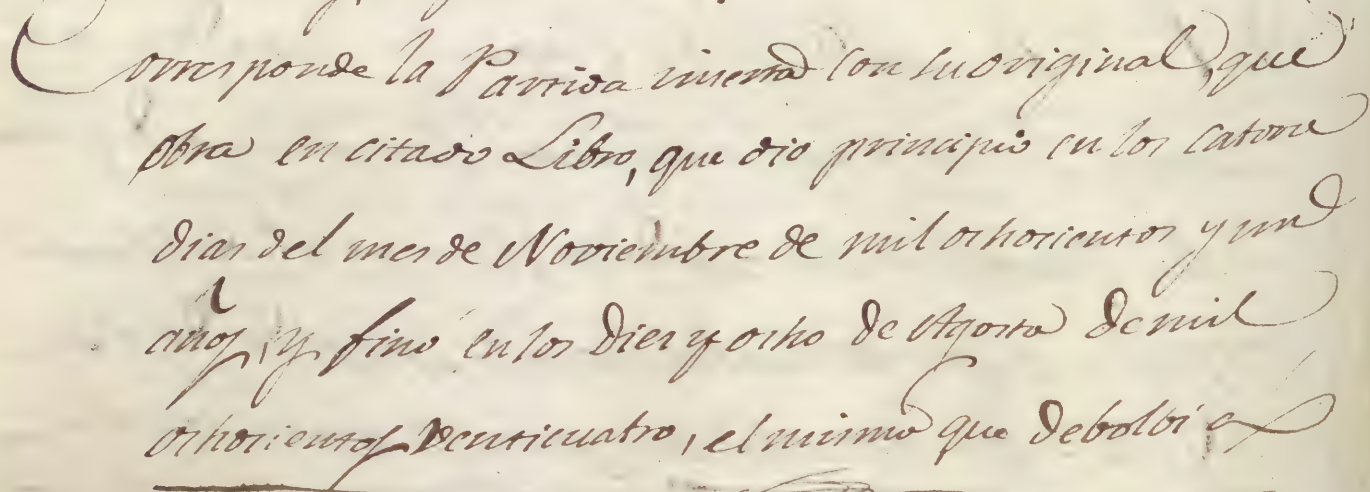 Corresponde la Partida inserta con su original, que
obra en citado Libro, que dio principio en los catorce
dias del mes de Noviembre de mil ochocientos y un
años, y finó en los diez y ocho de Agosto de mil
ochocientos veinticuatro, el mismo que debolbí a